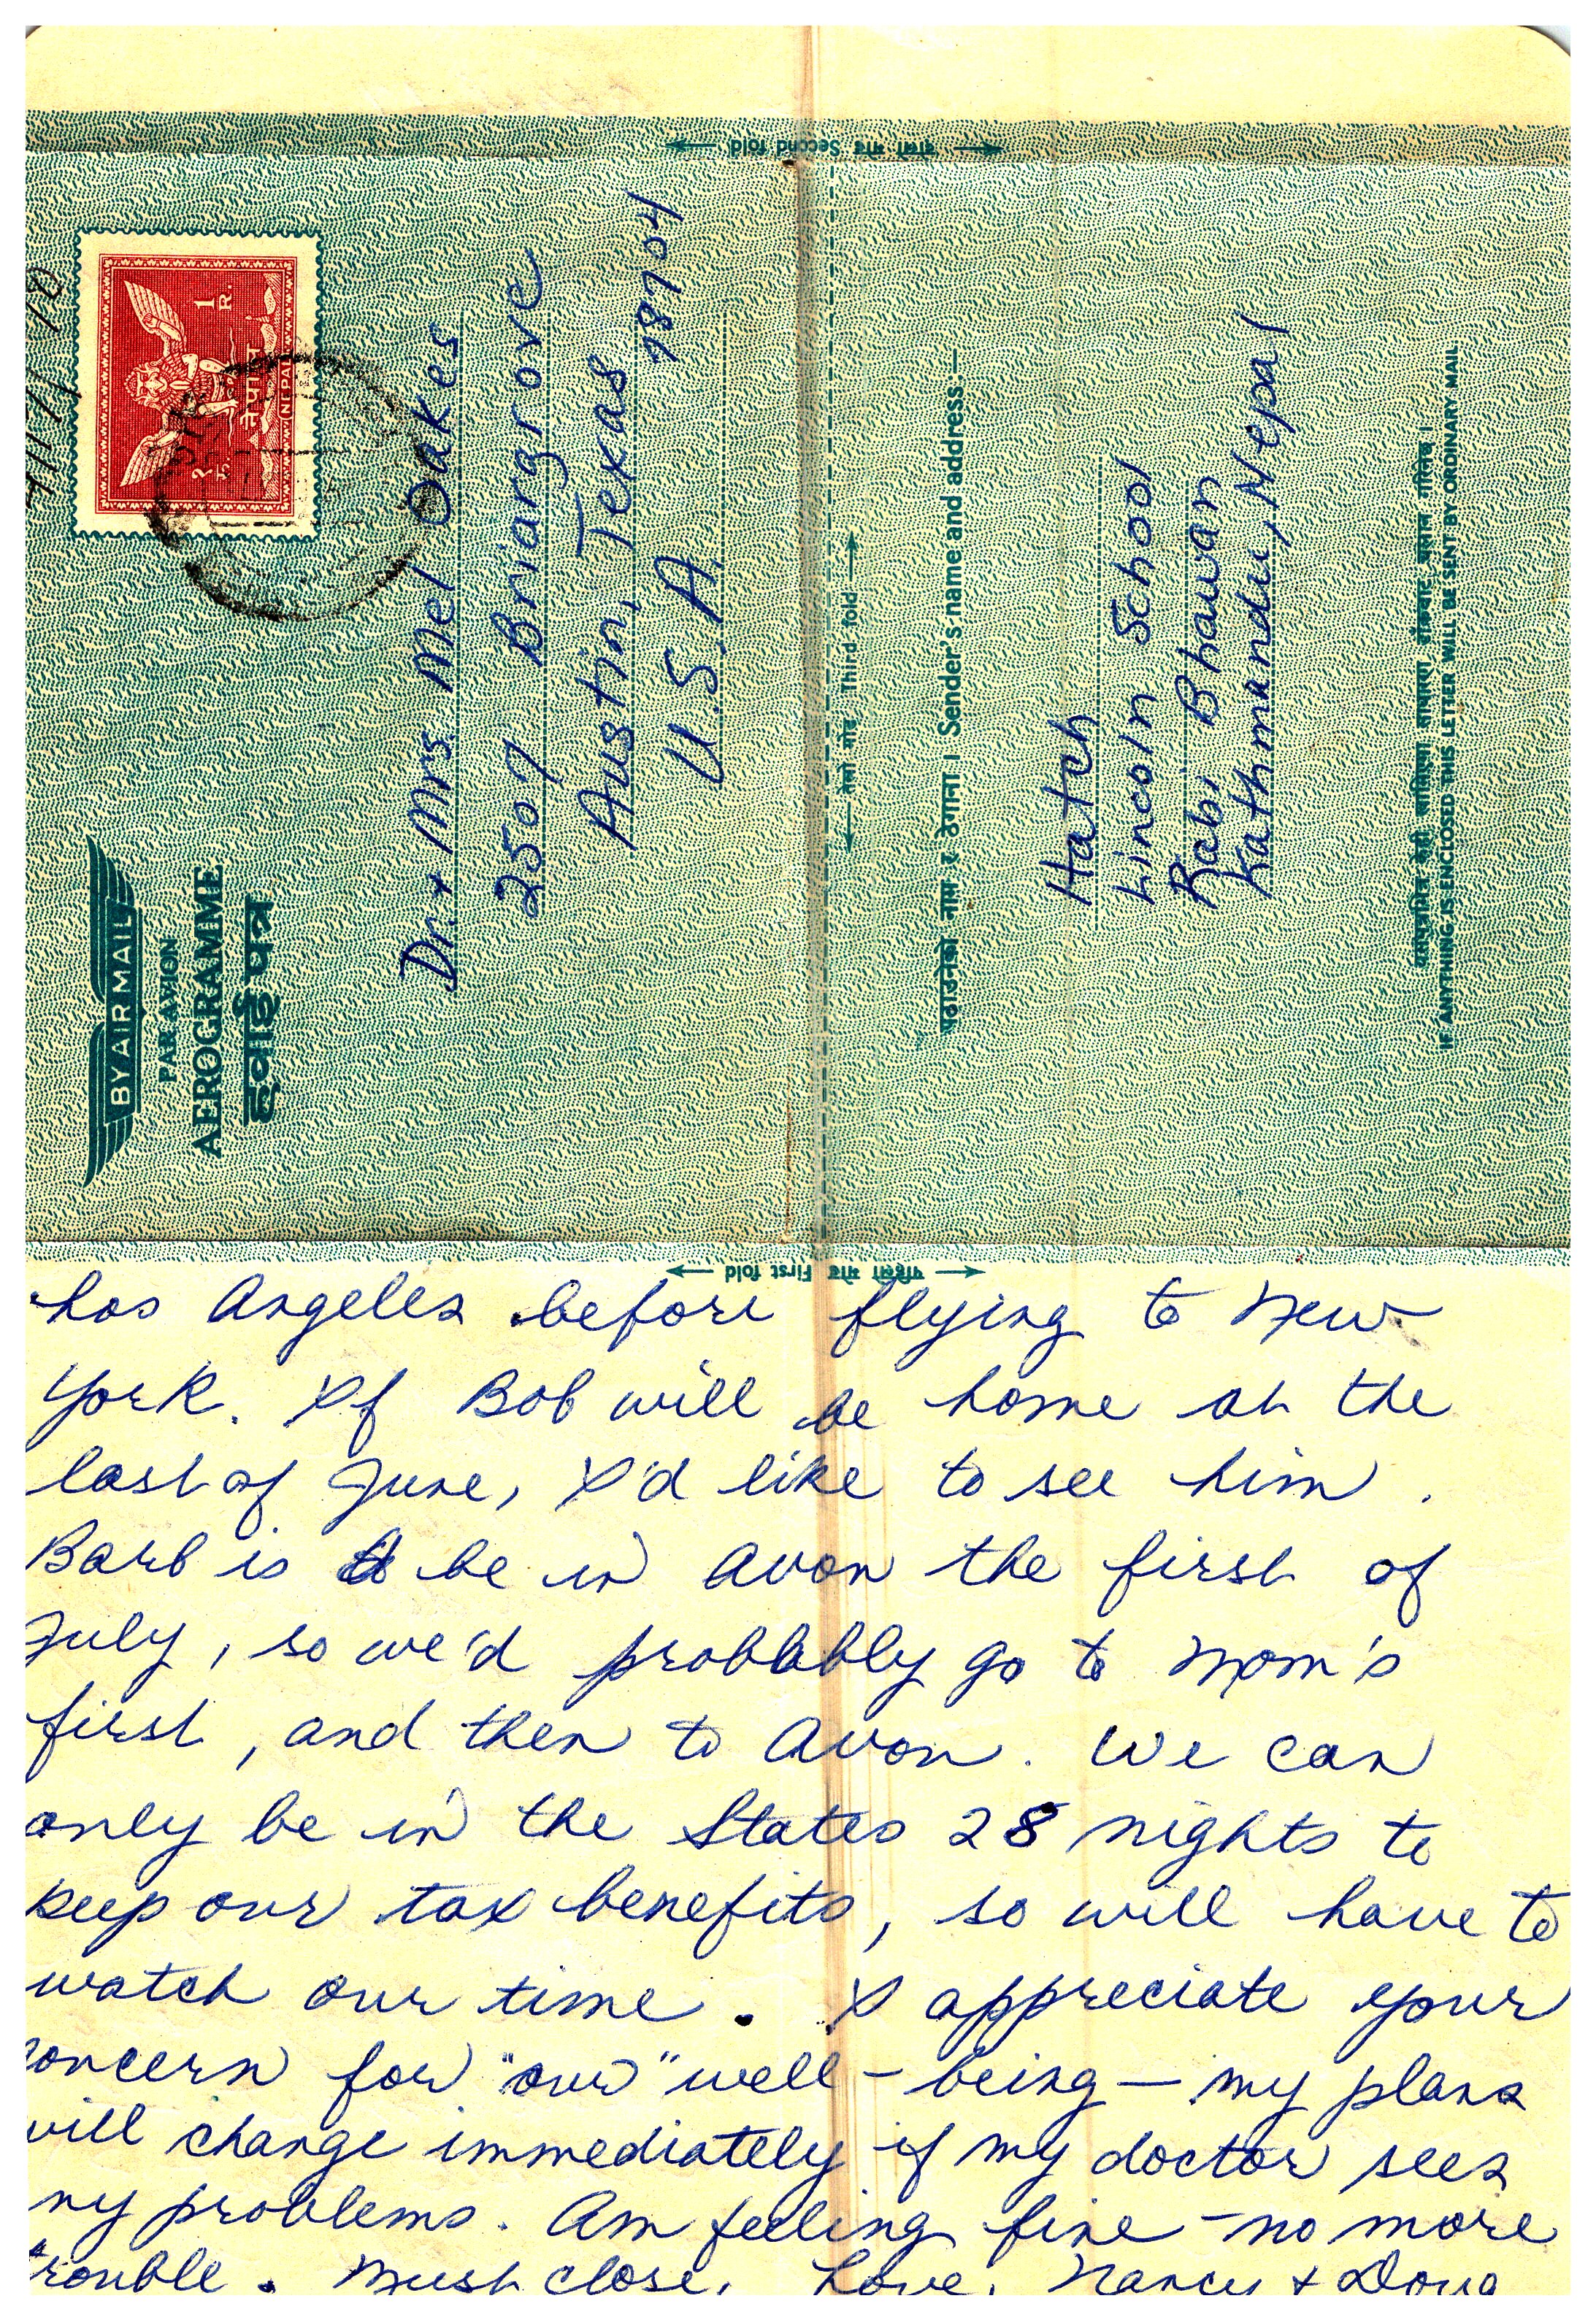 दोस्रो मोड Second fold
१ रु.
1 R.
नेपाल
NEPAL
BY AIR MAIL
PAR AVION
AEROGRAMME
हवाई पत्र
Dr. + Mrs. Mel Oakes
2507 Briargrove
Austin, Texas 78704
U.S.A.
तेस्रो मोड Third fold
पठाउनेको नाम र ठेगाना । Sender's name and address:—
Hatch
Lincoln School
Rabi Bhawan
Kathmandu, Nepal
IF ANYTHING IS ENCLOSED THIS LETTER WILL BE SENT BY ORDINARY MAIL
पहिलो मोड First fold
Los Angeles before flying to New
York. If Bob will be home at the
last of June, I'd like to see him.
Barb is to be in Avon the first of
July, so we'd probably go to Mom's
first, and then to Avon. We can
only be in the States 28 nights to
keep our tax benefits, so will have to
watch our time. I appreciate your
concern for "our" well-being — my plans
will change immediately if my doctor sees
ny problems. Am feeling fine - no more
trouble. Must close. Love, Nancy + Doug